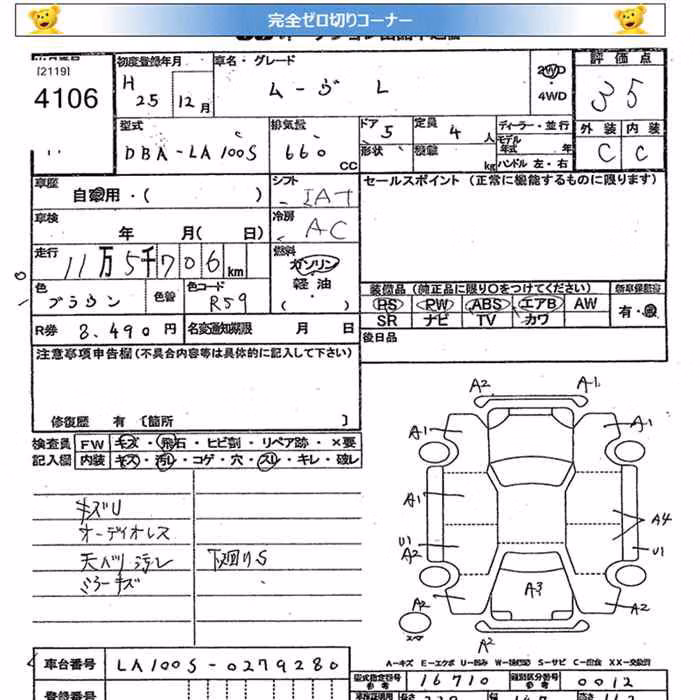 完全ゼロ切りコーナー
[2119]
4106
初度登録年月
H 25 12月
車名・グレード
ムーヴ L
2WD・4WD
評価点
35
型式
DBA-LA100S
排気量
660 CC
ドア 5
形状
定員 4人
kg
ディーラー・並行
モデル年式 年
ハンドル 左・右
外装 内装
C C
車歴
自家用・( )
シフト
IAT
セールスポイント (正常に機能するものに限ります)
車検
年 月( 日)
冷房
AC
走行
11万5千706km
燃料
ガソリン
軽油・
( )
色
ブラウン
色替
色コード
R59
装備品 (純正品に限り○をつけてください)
PS PW ABS エアB AW
SR ナビ TV カワ
新車保証書
有・無
R券 8,490円
名変通知期限 月 日
後日品
注意事項申告欄 (不具合内容等は具体的に記入して下さい)
修復歴 有 [箇所 ]
検査員記入欄
FW キズ・飛石・ヒビ割・リペア跡・×要
内装 キズ・汚レ・コゲ・穴・スレ・キレ・破レ
キズU
オーディオレス
天バリ汚レ
下廻りS
ミラーキズ
A2 A1
A1 A1
A1 A4
U1 A2 U1
A3
A2 A2
A2
A-キズ E-エクボ U-凹み S-サビ C-腐食 XX-交換済
車台番号 LA100S-0279280
型式指定番号 参考 16710
類別区分番号 参考 0012
登録番号